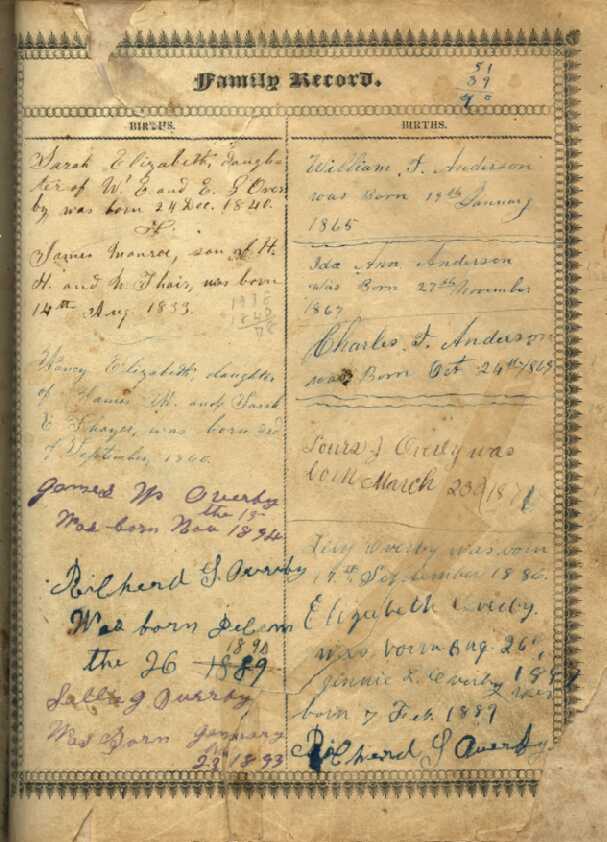 Family Record.
51
39
90
BIRTHS.
Sarah Elizabeth, daugh-
ter of W. E. and E. G. Over
by was born 24 Dec. 1840.
James Monroe, son of H.
H. and N. Thair, was born
14th Aug 1833.
Nancy Elizabeth, daughter
of James M. and Sarah
E Thayer, was born
of September, 1860.
James W Overby
the 13
Was born Nov 1894
Richerd S. Overby
Was born Decem
1890
the 26 1889
Sallie J Overby
Was Born January
23 1893
BIRTHS.
William F. Anderson
was Born 19th January
1865
Ida Ann Anderson
was Born 27th November
1867
Charles. F. Anderson
was Born Oct 24th 1869
Overby was
born March 23d 1871
Overby was born
17th September 1886.
Elizabeth Overby.
was born Aug. 26,
Jinnie L Overby was
born 7 Feb. 1889
Richerd S Overby